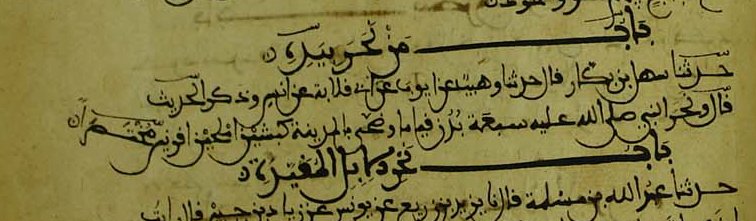 باب من نحر بيده
حدثنا سهل بن بكار قال حدثنا وهيب عن ايوب عن ابي قلابة عن انس وذكر الحديث
قال ونحر النبي صلى الله عليه سبعة بدن قياما وضحى بالمدينة كبشين املحين اقرنين مختصرا
باب نحر الابل المقيدة
حدثنا عبد الله بن مسلمة قال نا يزيد بن زريع عن يونس عن زياد بن جبير قال رايت